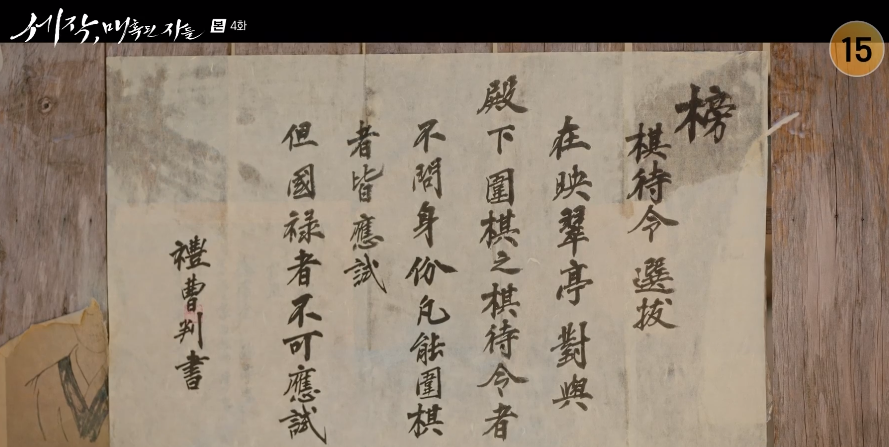 세작, 매혹된 자들 본 4화
15
榜
棋待令 選拔
在映翠亭 對與
殿下圍棋之棋待令者
不問身份凡能圍棋
者皆應試
但國祿者不可應試
禮曹判書